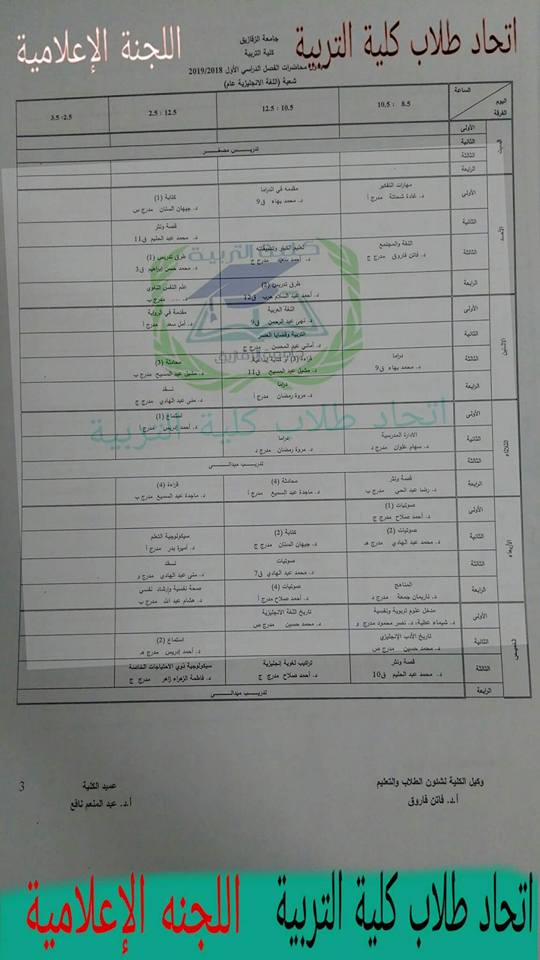 اتحاد طلاب كلية التربية اللجنة الإعلامية
جامعة الزقازيق
كلية التربية
محاضرات الفصل الدراسي الأول 2019/2018
شعبة (اللغة الانجليزية عام)
الساعة
اليوم الفرقة 8.5 : 10.5 10.5 : 12.5 12.5 : 2.5 2.5: 3.5
السبت
الأولى
الثانية
تدريس مصغر
الثالثة
الرابعة
الأحد
الأولى مهارات التفكير مقدمه في الدراما كتابة (1)
د. غادة شحاتة مدرج أ د. محمد بهاء ق9 د. جيهان السنان مدرج س
الثانية قصة ونثر
د. محمد عبد الحليم ق11
الثالثة اللغة والمجتمع طرق تدريس (1)
د. فاتن فاروق مدرج ج د. أحمد سعيد مدرج ج د. محمد حسن ابراهيم ق3
الرابعة طرق تدريس (2) علم النفس اللغوي
د. أحمد عبد السلام عرب ق12 مدرج ب
الاثنين
الأولى اللغة العربية مقدمة في الرواية
د. نهى عبد الرحمن ق9 د. أمل سعد مدرج أ
الثانية التربية وقضايا العصر
د. أماني عبد المحسن مدرج ج
الثالثة دراما قراءة (3) محادثة (3)
د. محمد بهاء ق9 د. مشيل عبد المسيح ق11 د. مشيل عبد المسيح مدرج ب
الرابعة دراما نقد
د. مروة رمضان مدرج أ د. منى عبد الهادي مدرج ج
الثلاثاء
الأولى استماع (1)
د. أحمد إدريس مدرج أ
الثانية الادارة المدرسية دراما
د. سهام علوان مدرج د د. مروة رمضان مدرج د
الثالثة تدريب ميداني
الرابعة قصة ونثر محادثة (4) قراءة (4)
د. رضا عبد الحي مدرج ب د. ماجدة عبد السميع مدرج أ د. ماجدة عبد السميع مدرج ب
الأربعاء
الأولى صوتيات (1)
د. أحمد صلاح مدرج ج
الثانية صوتيات (2) كتابة (2) سيكولوجية التعلم
د. محمد عبد الهادي مدرج هـ د. جيهان السنان مدرج ج د. أميرة بدر مدرج أ
الثالثة صوتيات نقد
د. محمد عبد الهادي ق7 د. منى عبد الهادي مدرج و
الرابعة المناهج صوتيات (4) صحة نفسية وإرشاد نفسي
د. ناريمان جمعة مدرج د د. أحمد صلاح مدرج أ د. هشام عبد الله مدرج ب
خميس
الأولى مدخل علوم تربوية ونفسية تاريخ اللغة الانجليزية
د. شيماء عطية، د. نصر محمود مدرج و د. محمد حسين مدرج ص
الثانية تاريخ الأدب الإنجليزي استماع (2)
د. محمد حسين مدرج ص د. أحمد إدريس مدرج هـ
الثالثة قصة ونثر تراكيب لغوية إنجليزية سيكولوجية ذوي الاحتياجات الخاصة
د. محمد عبد الحليم ق10 د. أحمد صلاح مدرج ج د. فاطمة الزهراء زاهر مدرج ج
الرابعة تدريب ميداني
كلية التربية
اتحاد طلاب كلية التربية
وكيل الكلية لشئون الطلاب والتعليم عميد الكلية 3
أ.د. فاتن فاروق أ.د. عبد المنعم نافع
اتحاد طلاب كلية التربية اللجنه الإعلامية